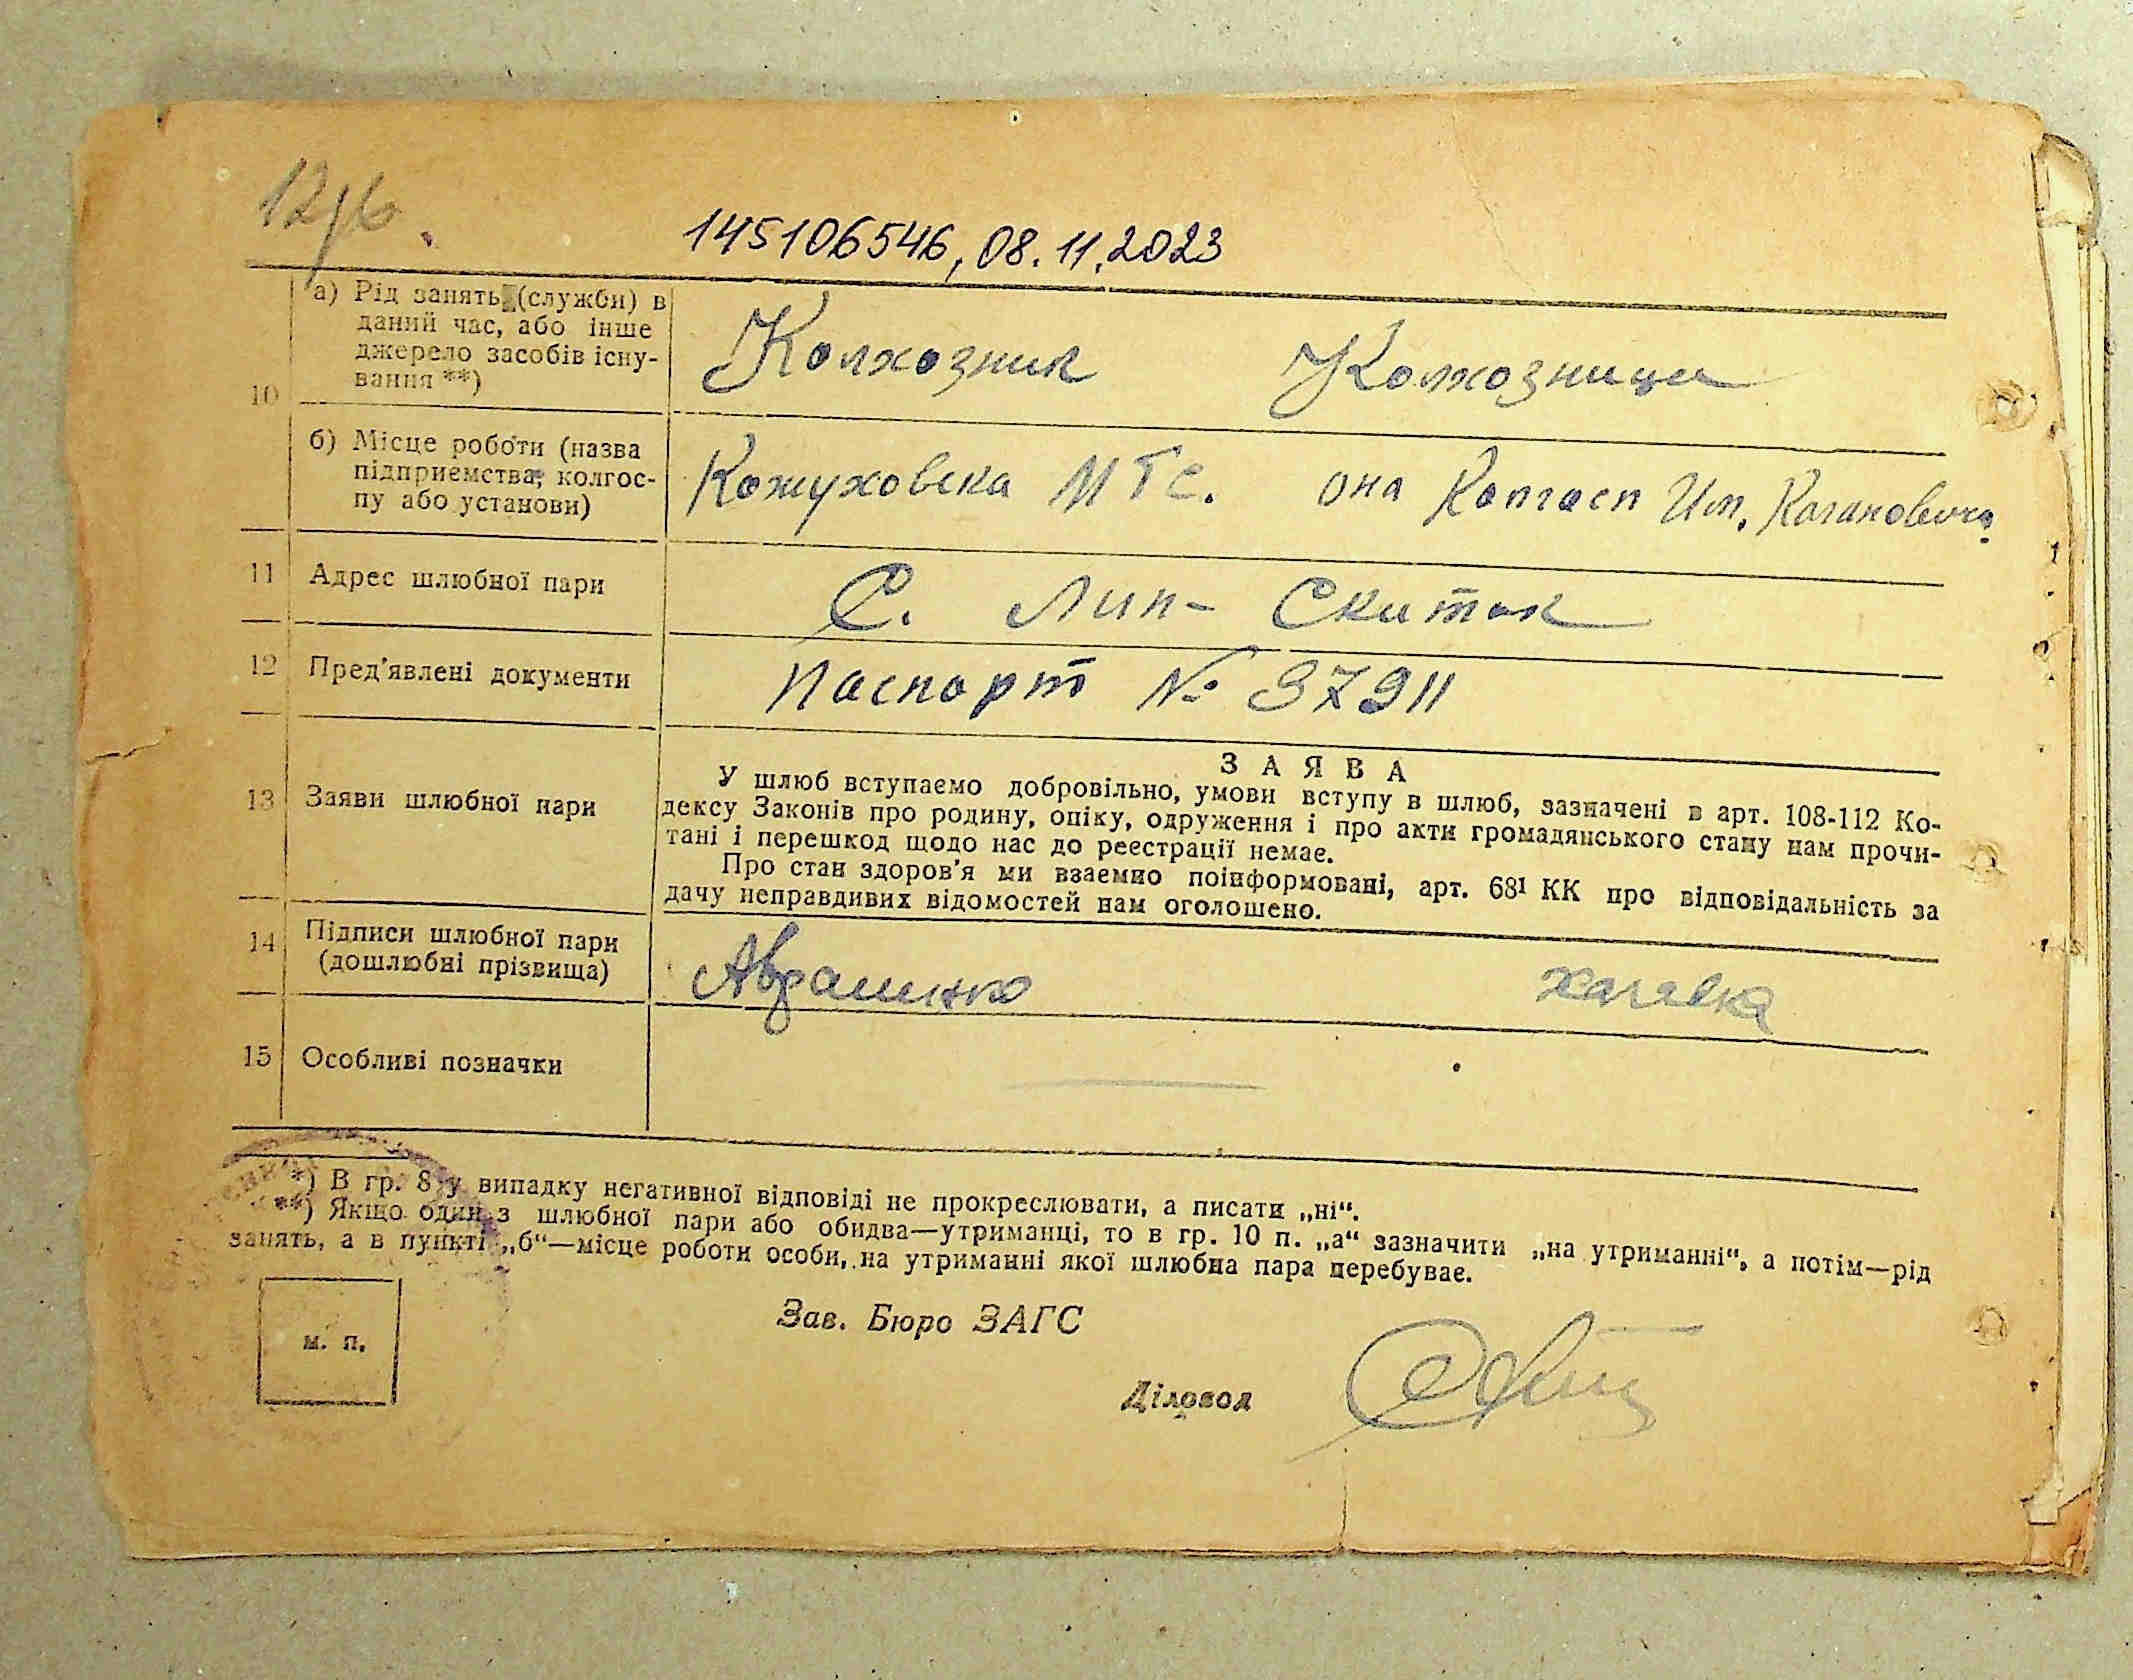 145106546, 08.11.2023
10
а) Рід занять (служби) в
даний час, або інше
джерело засобів існу-
вання **)
Колхозник Колхозница
б) Місце роботи (назва
підприємства, колгос-
пу або установи)
Кожуховска МТС. она Колгосп Им. Кагановича
11 Адрес шлюбної пари
С. Лип-Скиток
12 Пред'явлені документи
Паспорт № 37911
13 Заяви шлюбної пари
ЗАЯВА
У шлюб вступаємо добровільно, умови вступу в шлюб, зазначені в арт. 108-112 Ко-
дексу Законів про родину, опіку, одруження і про акти громадянського стану нам прочи-
тані і перешкод щодо нас до реєстрації немає.
Про стан здоров'я ми взаємно поінформовані, арт. 68¹ КК про відповідальність за
дачу неправдивих відомостей нам оголошено.
14 Підписи шлюбної пари
(дошлюбні прізвища)
15 Особливі позначки
*) В гр. 8 у випадку негативної відповіді не прокреслювати, а писати „ні“.
**) Якщо один з шлюбної пари або обидва—утриманці, то в гр. 10 п. „а“ зазначити „на утриманні“, а потім—рід
занять, а в пункті „б“—місце роботи особи, на утриманні якої шлюбна пара перебуває.
м. п.
Зав. Бюро ЗАГС
Діловод